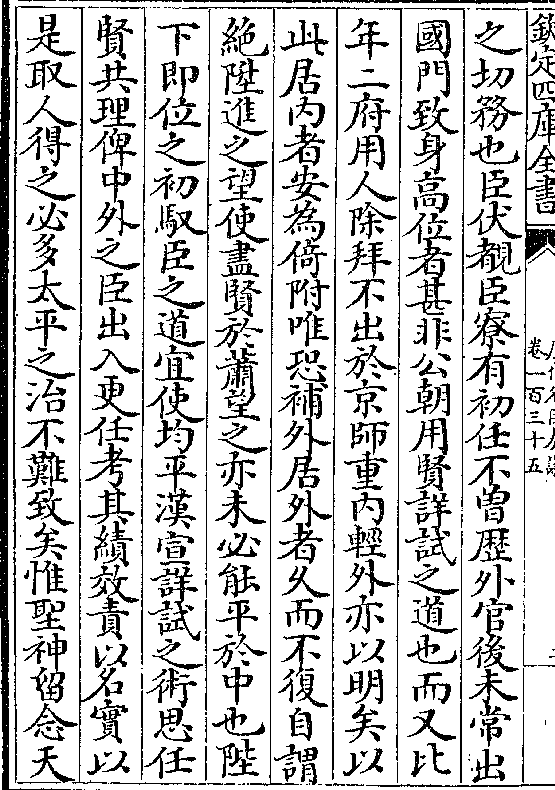 欽定四庫全書
卷一百三十五
之切務也臣伏覩臣寮有初任不曽歴外官後未常出
國門致身高位者甚非公朝用賢詳試之道也而又比
年二府用人除拜不出於京師重内輕外亦以明矣以
此居内者安為倚附唯恐補外居外者久而不復自謂
絶陞進之望使盡賢於蕭望之亦未必能平於中也陛
下即位之初馭臣之道宜使均平漢宣詳試之術思任
賢共理俾中外之臣出入更任考其績效責以名實以
是取人得之必多太平之治不難致矣惟聖神留念天